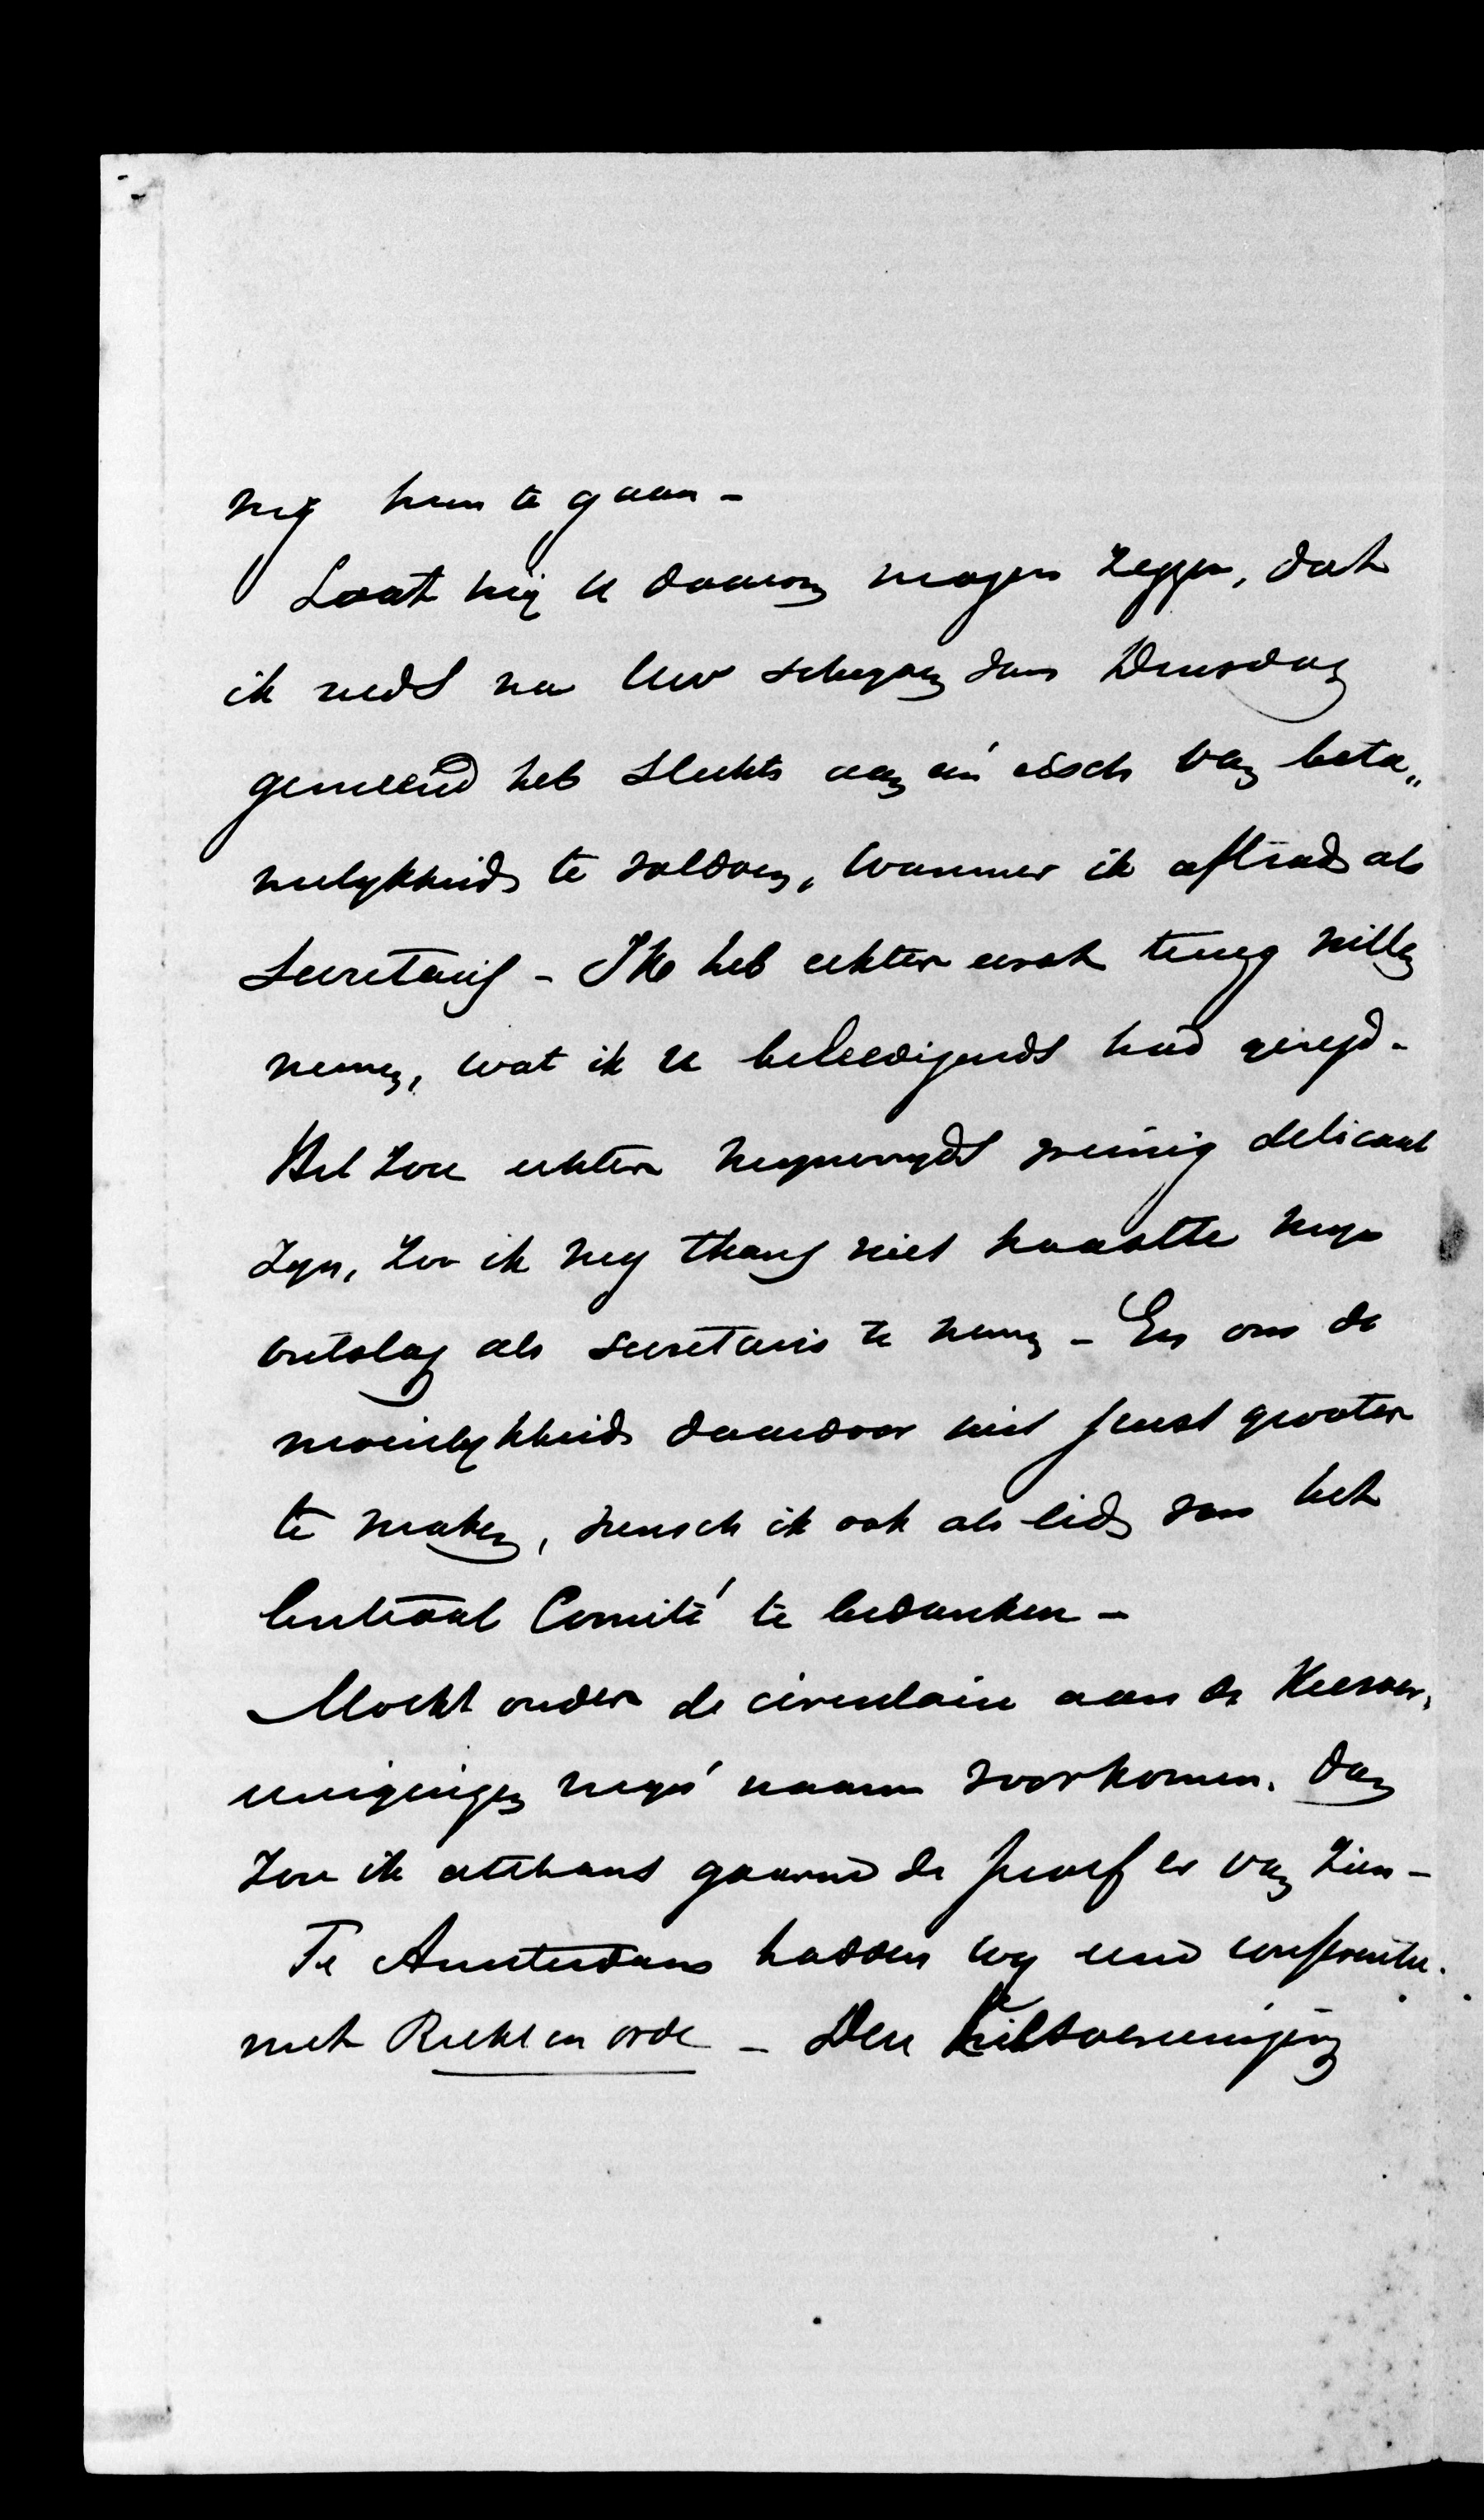 mij heen te gaan -
Laat mij U daarom mogen zeggen, dat
ik reeds na Uw schryven van Dinsdag
gemeend heb slechts aan één eisch van beta„
melykheid te voldoen, wanneer ik aftrad als
Secretaris - Ik heb echter eerst terug willen
nemen, wat ik U beleedigends had gezegd -
Het zou echter mynerzyds weinig delicaat
zyn, zoo ik my thans niet haastte myn
ontslag als secretaris te nemen - En om de
moeilykheid daardoor niet juist grooter
te maken, wensch ik ook als lid van het
Centraal Comité te bedanken -
Mocht onder de circulaire aan de Kiesver„
eenigingen myn naam voorkomen, dan
zou ik althans gaarne de proef er van zien -
Te Amsterdam hadden wy eene conferentie
met Recht en orde - Den Kiesvereeniging